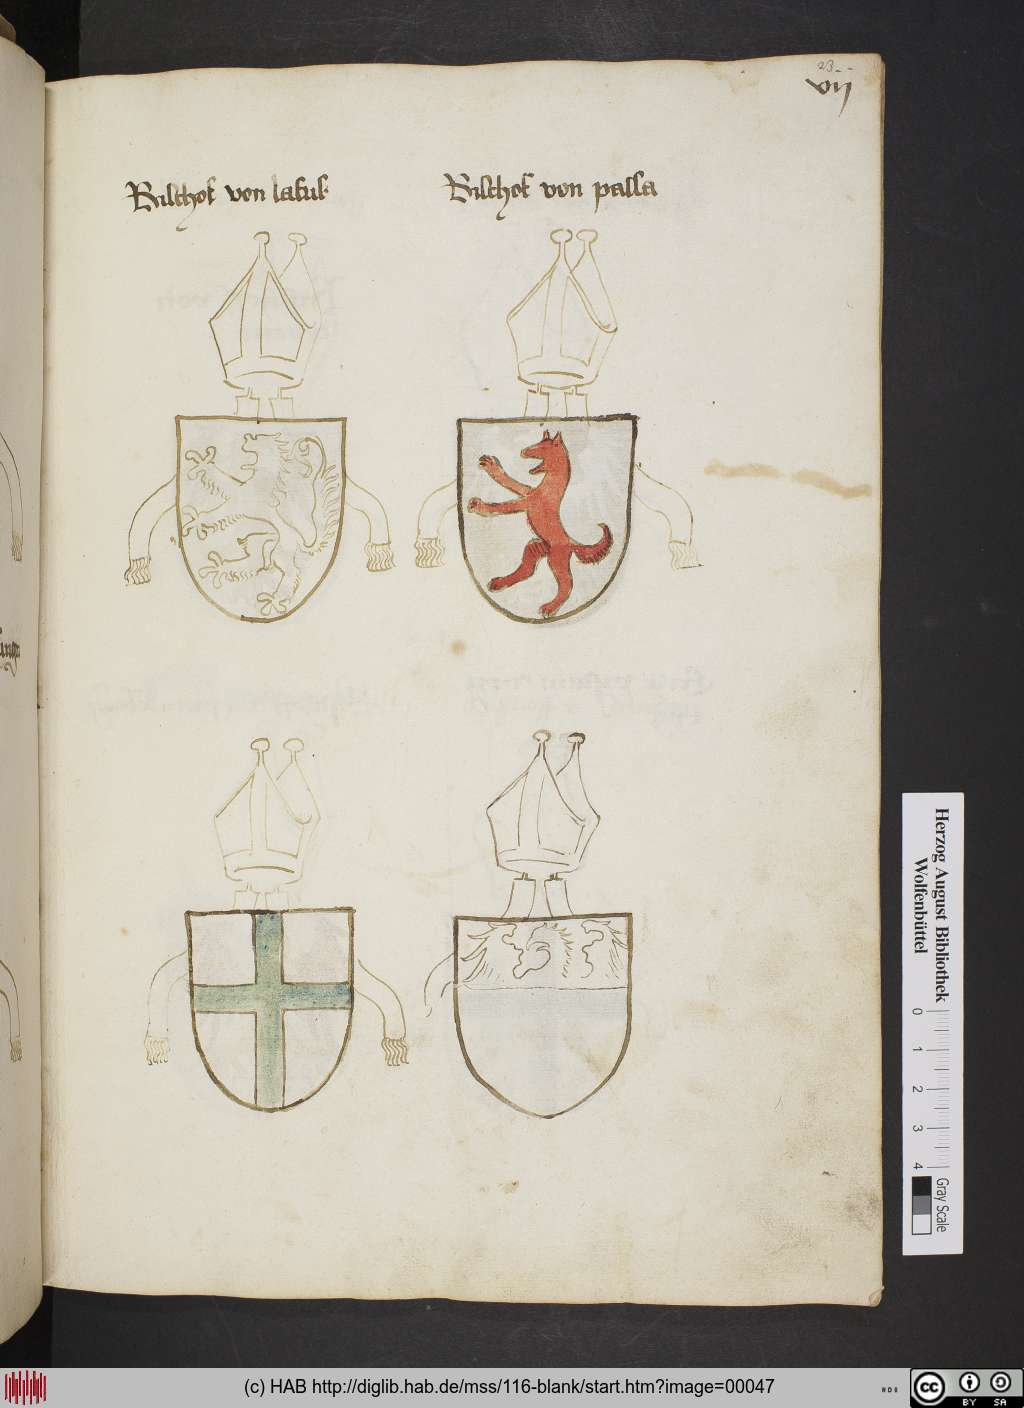 23
vij
Bischof von lasus
Bischof von passa
Herzog August Bibliothek
Wolfenbüttel
0 1 2 3 4
Gray Scale
(c) HAB http://diglib.hab.de/mss/116-blank/start.htm?image=00047
cc BY SA